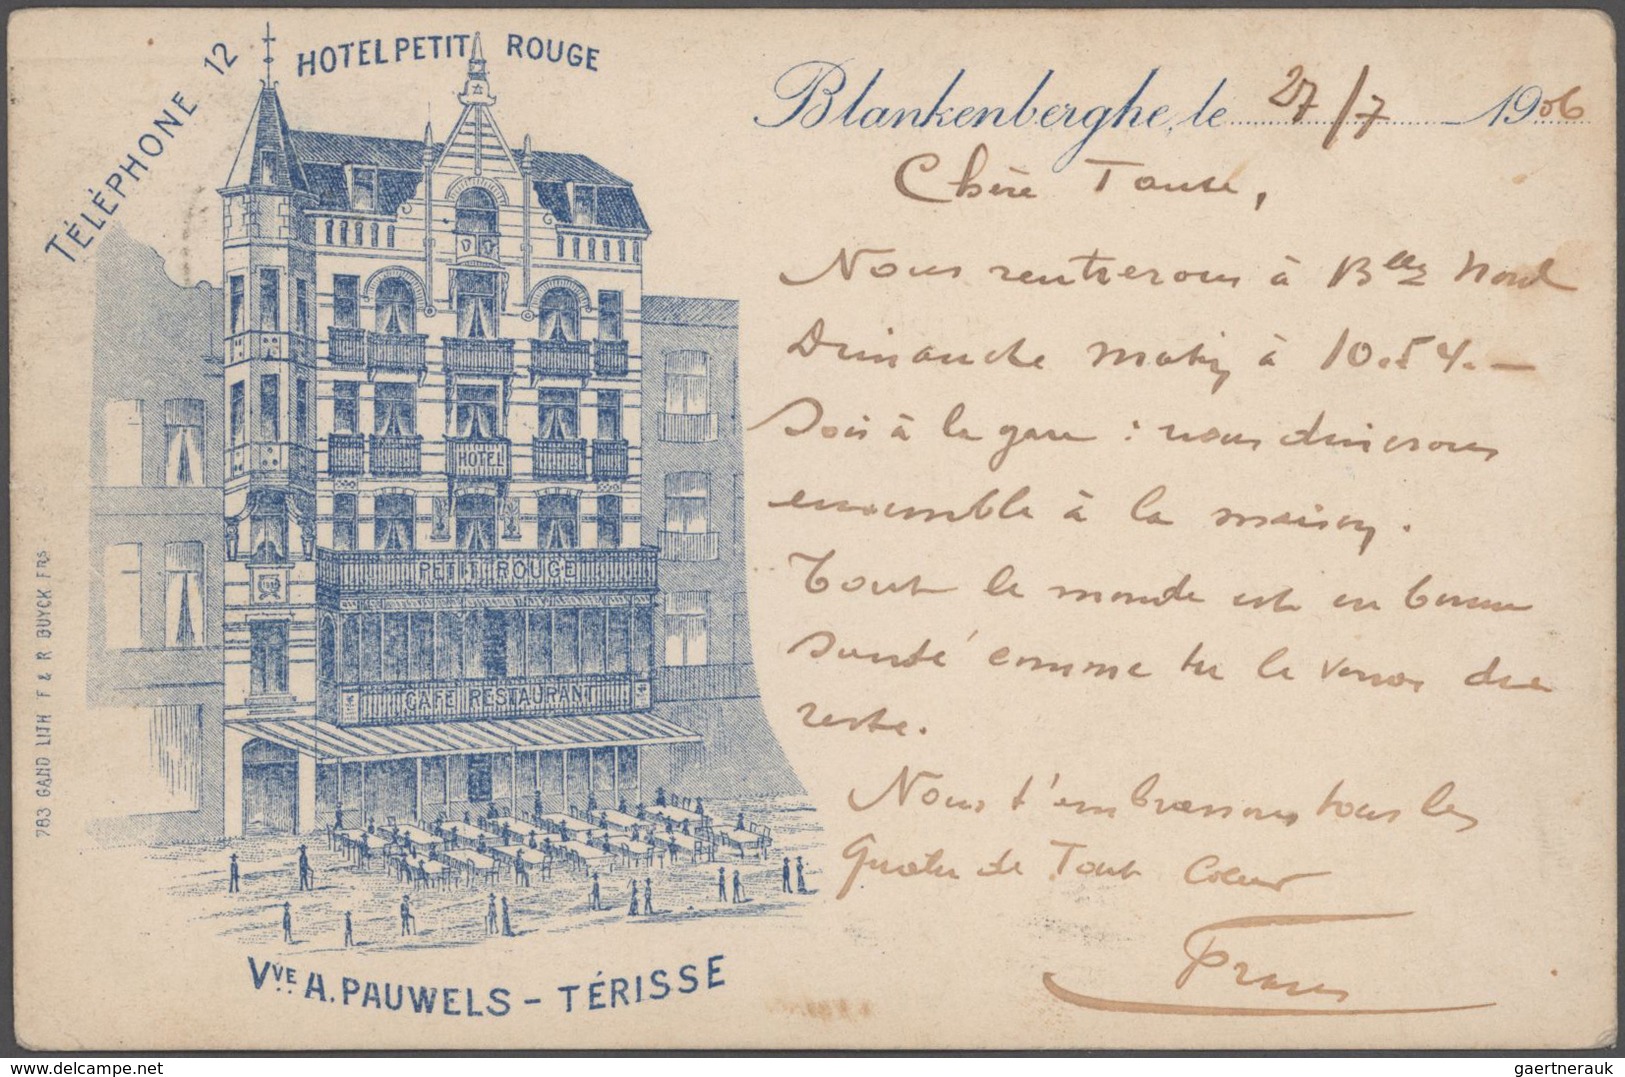 TÉLÉPHONE 12
HOTEL PETIT ROUGE
HOTEL
PETIT ROUGE
CAFE RESTAURANT
783 GAND LITH F & R BUYCK FRS.
Vve A. PAUWELS – TÉRISSE
Blankenberghe, le 27/7 1906
Chère Tante,
Nous rentrerons à Blles Nord
Dimanche matin à 10.54. —
Sois à la gare : nous dinerons
ensemble à la maison.
Tout le monde est en bonne
santé comme tu le verras du
reste.
Nous t'embrassons tous les
quatre de Tout Coeur
gaertnerauk @ delcampe.net